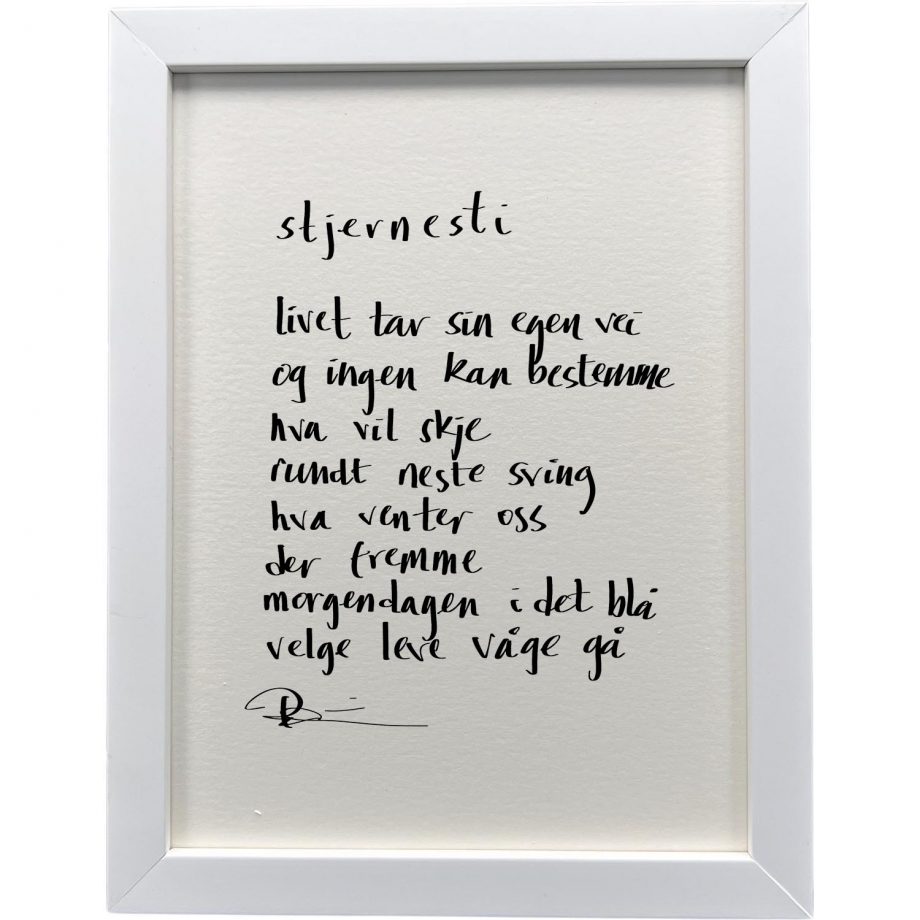 stjernesti
livet tar sin egen vei
og ingen kan bestemme
hva vil skje
rundt neste sving
hva venter oss
der fremme
morgendagen i det blå
velge leve våge gå